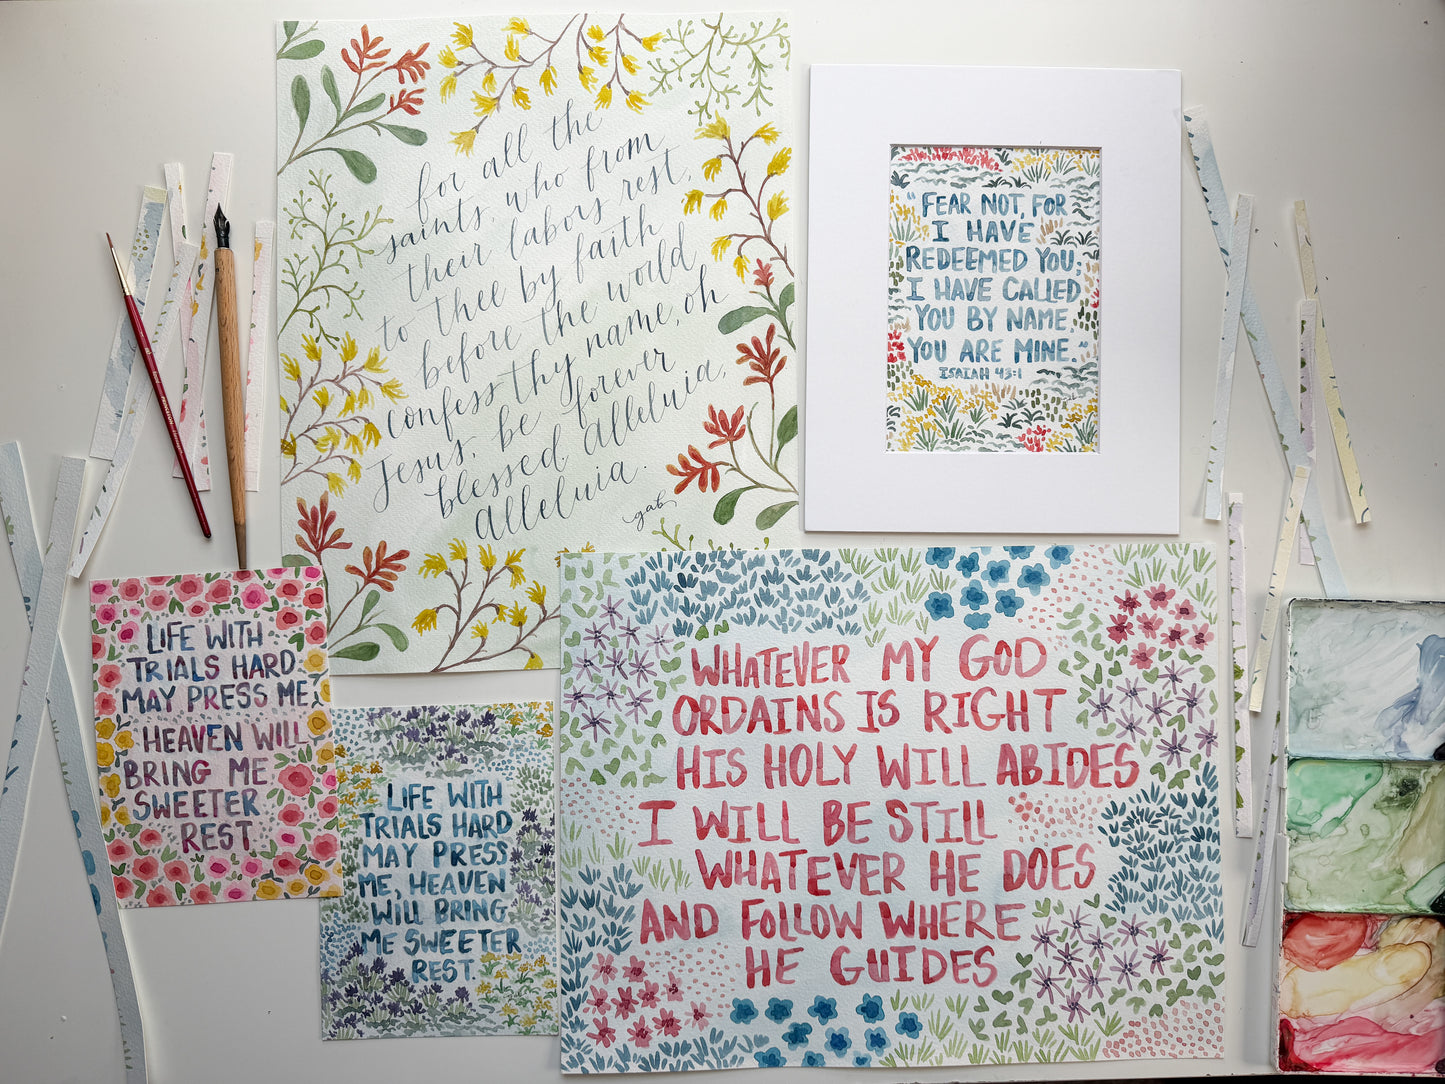 for all the
saints, who from
their labors rest,
to thee by faith
before the world
confess thy name, oh
Jesus, be forever
blessed alleluia,
alleluia.
gab
"FEAR NOT, FOR
I HAVE
REDEEMED YOU;
I HAVE CALLED
YOU BY NAME
YOU ARE MINE."
ISAIAH 43:1
LIFE WITH
TRIALS HARD
MAY PRESS ME
HEAVEN WILL
BRING ME
SWEETER
REST.
LIFE WITH
TRIALS HARD
MAY PRESS
ME, HEAVEN
WILL BRING
ME SWEETER
REST.
WHATEVER MY GOD
ORDAINS IS RIGHT
HIS HOLY WILL ABIDES
I WILL BE STILL
WHATEVER HE DOES
AND FOLLOW WHERE
HE GUIDES